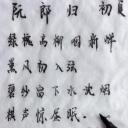 阮郎归 初夏
绿槐高柳咽新蝉
薰风初入弦
碧纱窗下水沈烟
棋声惊昼眠